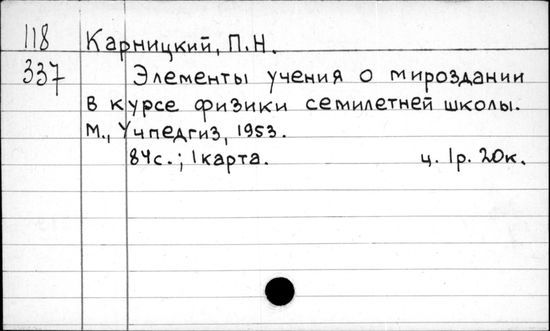 118 Карницкий, П.Н.
337 Элементы учения о мироздании
в курсе физики семилетней школы.
М., Учпедгиз, 1953.
84с.; 1 карта. ц. 1р. 20к.